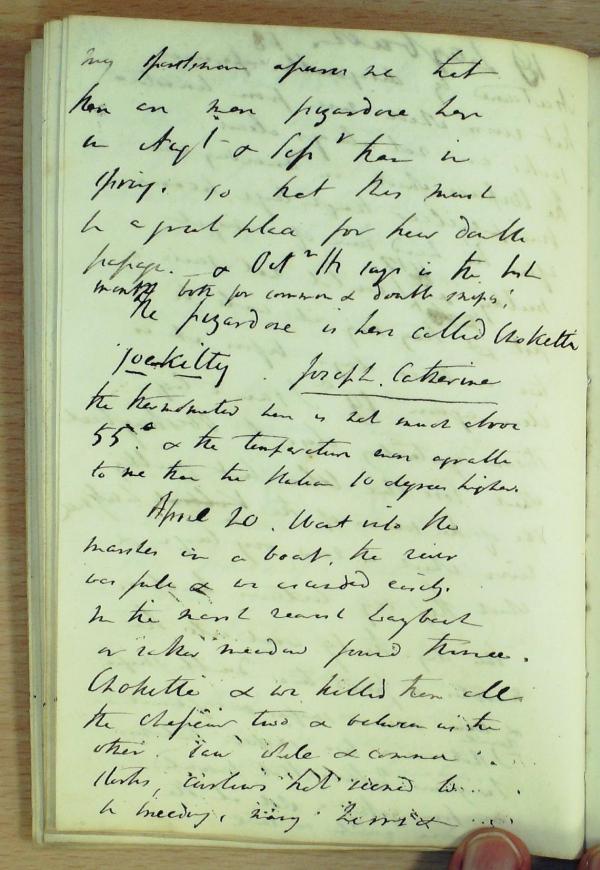 my sportsman assures me that
there are more pizardone here
in Augt & Sepr than in
spring. so that this must
be a great place for their double
passage. & Octr He says is the best
month both for common & double snipes.
The pizardone is here called Chokette
JoeKitty. Joseph. Catherine
the thermometer here is not much above
55° & the temperature more agreable
to me than the Italian 10 degrees higher.
April 20. Went into the
marshes in a boat, the river
was full & we ascended easily.
In the marsh nearest Laybach
or rather meadow found three
Chokette & we killed them all
the chasseur two & between us the
other. Saw white & common
storks, curlews that seemed to
be breeding, many &